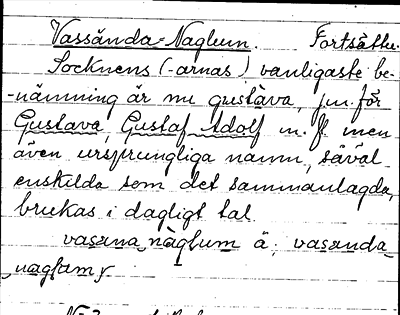 Vassända-Naglum. Fortsättn.
Socknens (-arnas) vanligaste be-
-nämning är nu gustàva, jm. för
Gustava, Gustaf Adolf m. fl. men
även ursprungliga namn, såväl
enskilda som det sammanlagda,
brukas i dagligt tal.
vasana nàglum ä; vasanda
naglam